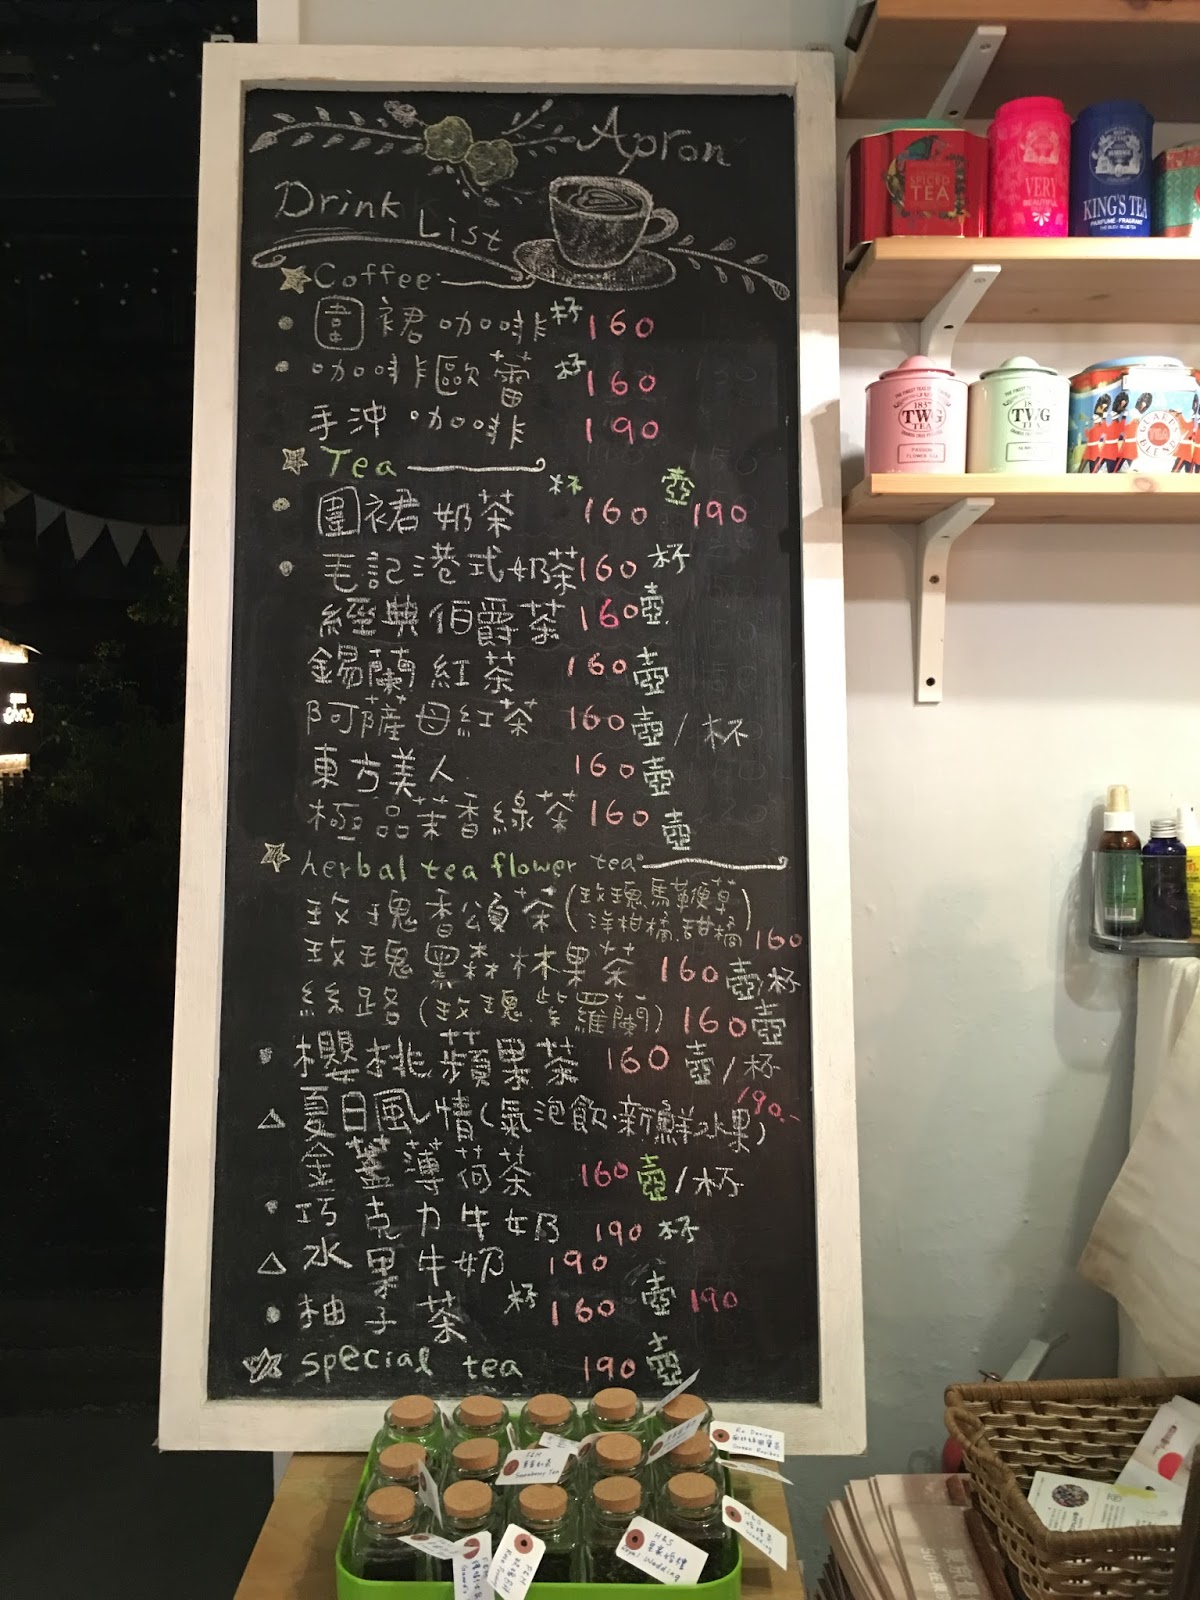 Apron
Drink List
Coffee
圍裙咖啡 杯 160
咖啡歐蕾 杯 160
手沖咖啡 190
Tea
杯 壺
圍裙奶茶 160 190
毛記港式奶茶 160 杯
經典伯爵茶 160 壺
錫蘭紅茶 160 壺
阿薩母紅茶 160 壺/杯
東方美人 160 壺
極品茉香綠茶 160 壺
herbal tea flower tea
玫瑰香頌茶(玫瑰.馬鞭草
洋甘橘.甜橘) 160
玫瑰黑森林果茶 160 壺/杯
絲路(玫瑰.紫羅蘭) 160 壺
櫻桃蘋果茶 160 壺/杯
夏日風情(氣泡飲.新鮮水果) 190.-
金盞薄荷茶 160 壺/杯
巧克力牛奶 190 杯
水果牛奶 190
柚子茶 杯 160 壺 190
special tea 190 壺
SPICED
TEA
VERY
BEAUTIFUL
KING'S TEA
PARFUME · FRAGRANT
1837
TWG
TEA
PASSION
FLOWER TEA
1837
TWG
TEA
TEA
BLEND
H&S
Royal Wedding
H&S
Wedding